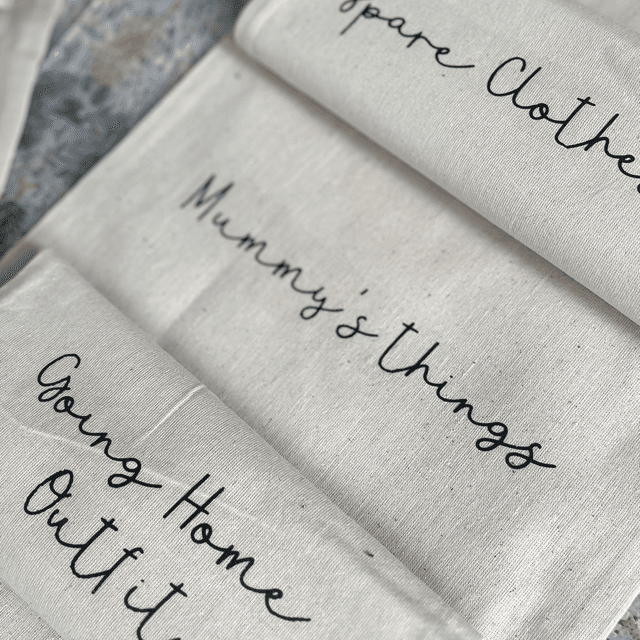 Spare Clothes
Mummy's things
Going Home
Outfit